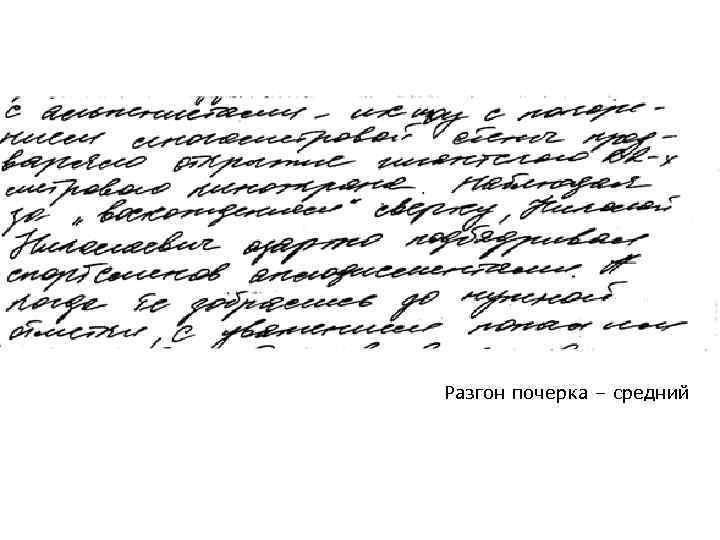 с альпинистами – между с покоре-
нием многометровой стены пред-
варяло открытие гигантского кв-х
метрового киноэкрана. Наблюдая
за „восхождением" сверху, Николай
Николаевич азартно подбадривал
спортсменов аплодисментами. А
когда те добрались до нужной
отметки, с уважением пожал им
Разгон почерка – средний